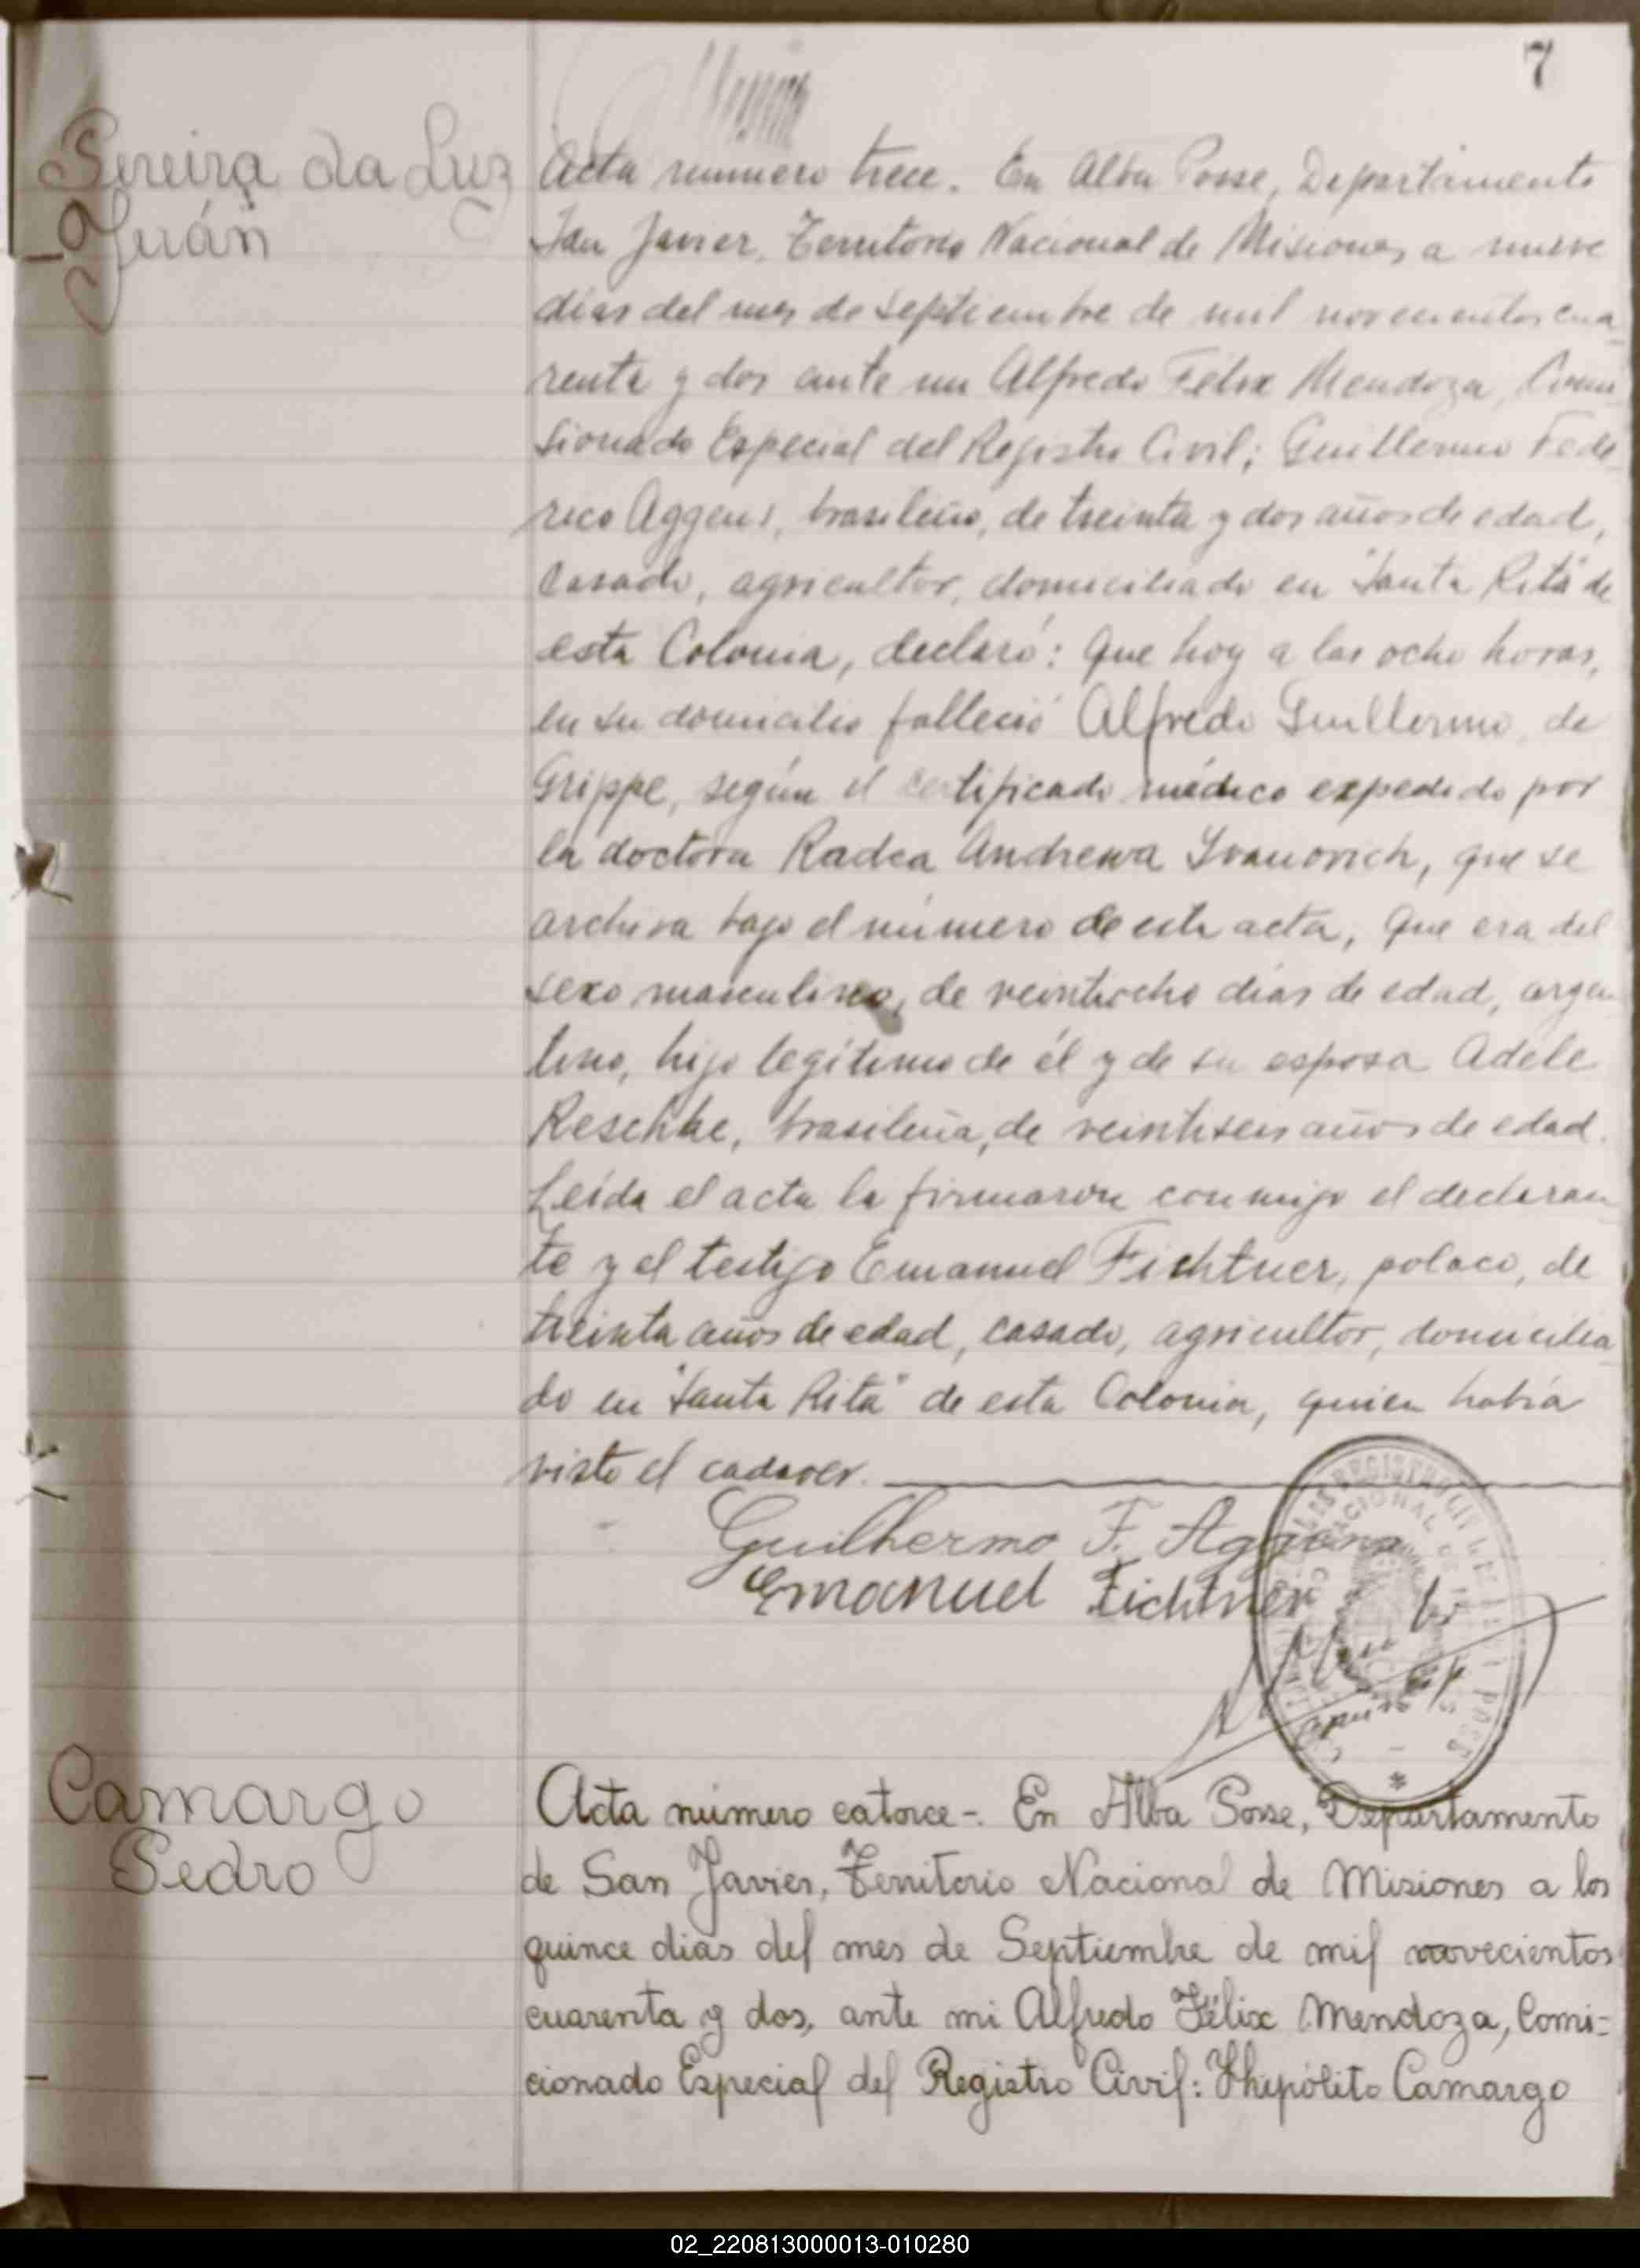 7
Pereira da Luz
Juán
Acta numero trece. En Alba Posse, Departamento
San Javier, Territorio Nacional de Misiones, a nueve
dias del mes de septiembre de mil novecientos cua
renta y dos ante mi Alfredo Félix Mendoza, Comi
sionado Especial del Registro Civil; Guillermo Fede
rico Aggens, brasileño, de treinta y dos años de edad,
casado, agricultor, domiciliado en "Santa Rita" de
esta Colonia, declaró: Que hoy a las ocho horas,
en su domicilio falleció Alfredo Guillermo, de
Grippe, según el certificado médico expedido por
la doctora Radca Andrewa Yvanovich, que se
archiva bajo el número de esta acta, Que era del
sexo masculino, de veintiocho dias de edad, argen
tino, hijo legítimo de él y de su esposa Adele
Reschke, brasileña, de veintiseis años de edad.
Leída el acta la firmaron conmigo el declaran
te y el testigo Emanuel Fichtner, polaco, de
treinta años de edad, casado, agricultor, domicilia
do en "Santa Rita" de esta Colonia, quien había
visto el cadaver.
Guilhermo F. Aggens
Emanuel Fichtner
REGISTRO CIVIL
Camargo
Pedro
Acta número catorce-. En Alba Posse, Departamento
de San Javier, Territorio Nacional de Misiones a los
quince dias del mes de Septiembre de mil novecientos
cuarenta y dos, ante mi Alfredo Félix Mendoza, Comi=
cionado Especial del Registro Civil: Yhipólito Camargo
02_220813000013-010280